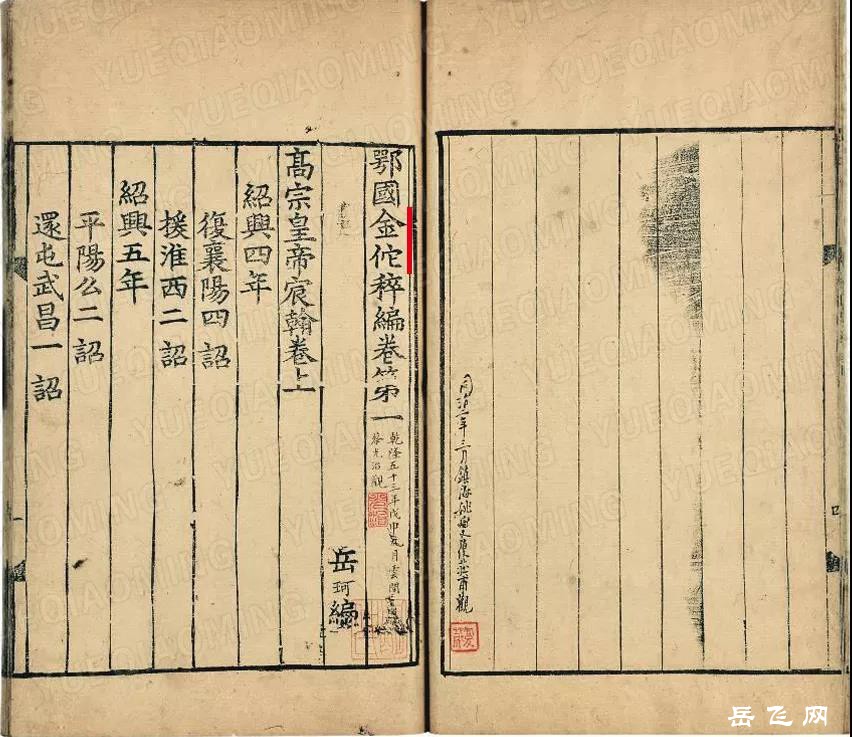 鄂國金佗稡編卷第一
乾隆五十三年戊申
岳珂編
髙宗皇帝宸翰卷上
紹興四年
復襄陽四詔
援淮西二詔
紹興五年
平陽么二詔
還屯武昌一詔
岳飞网
YUEQIAOMING